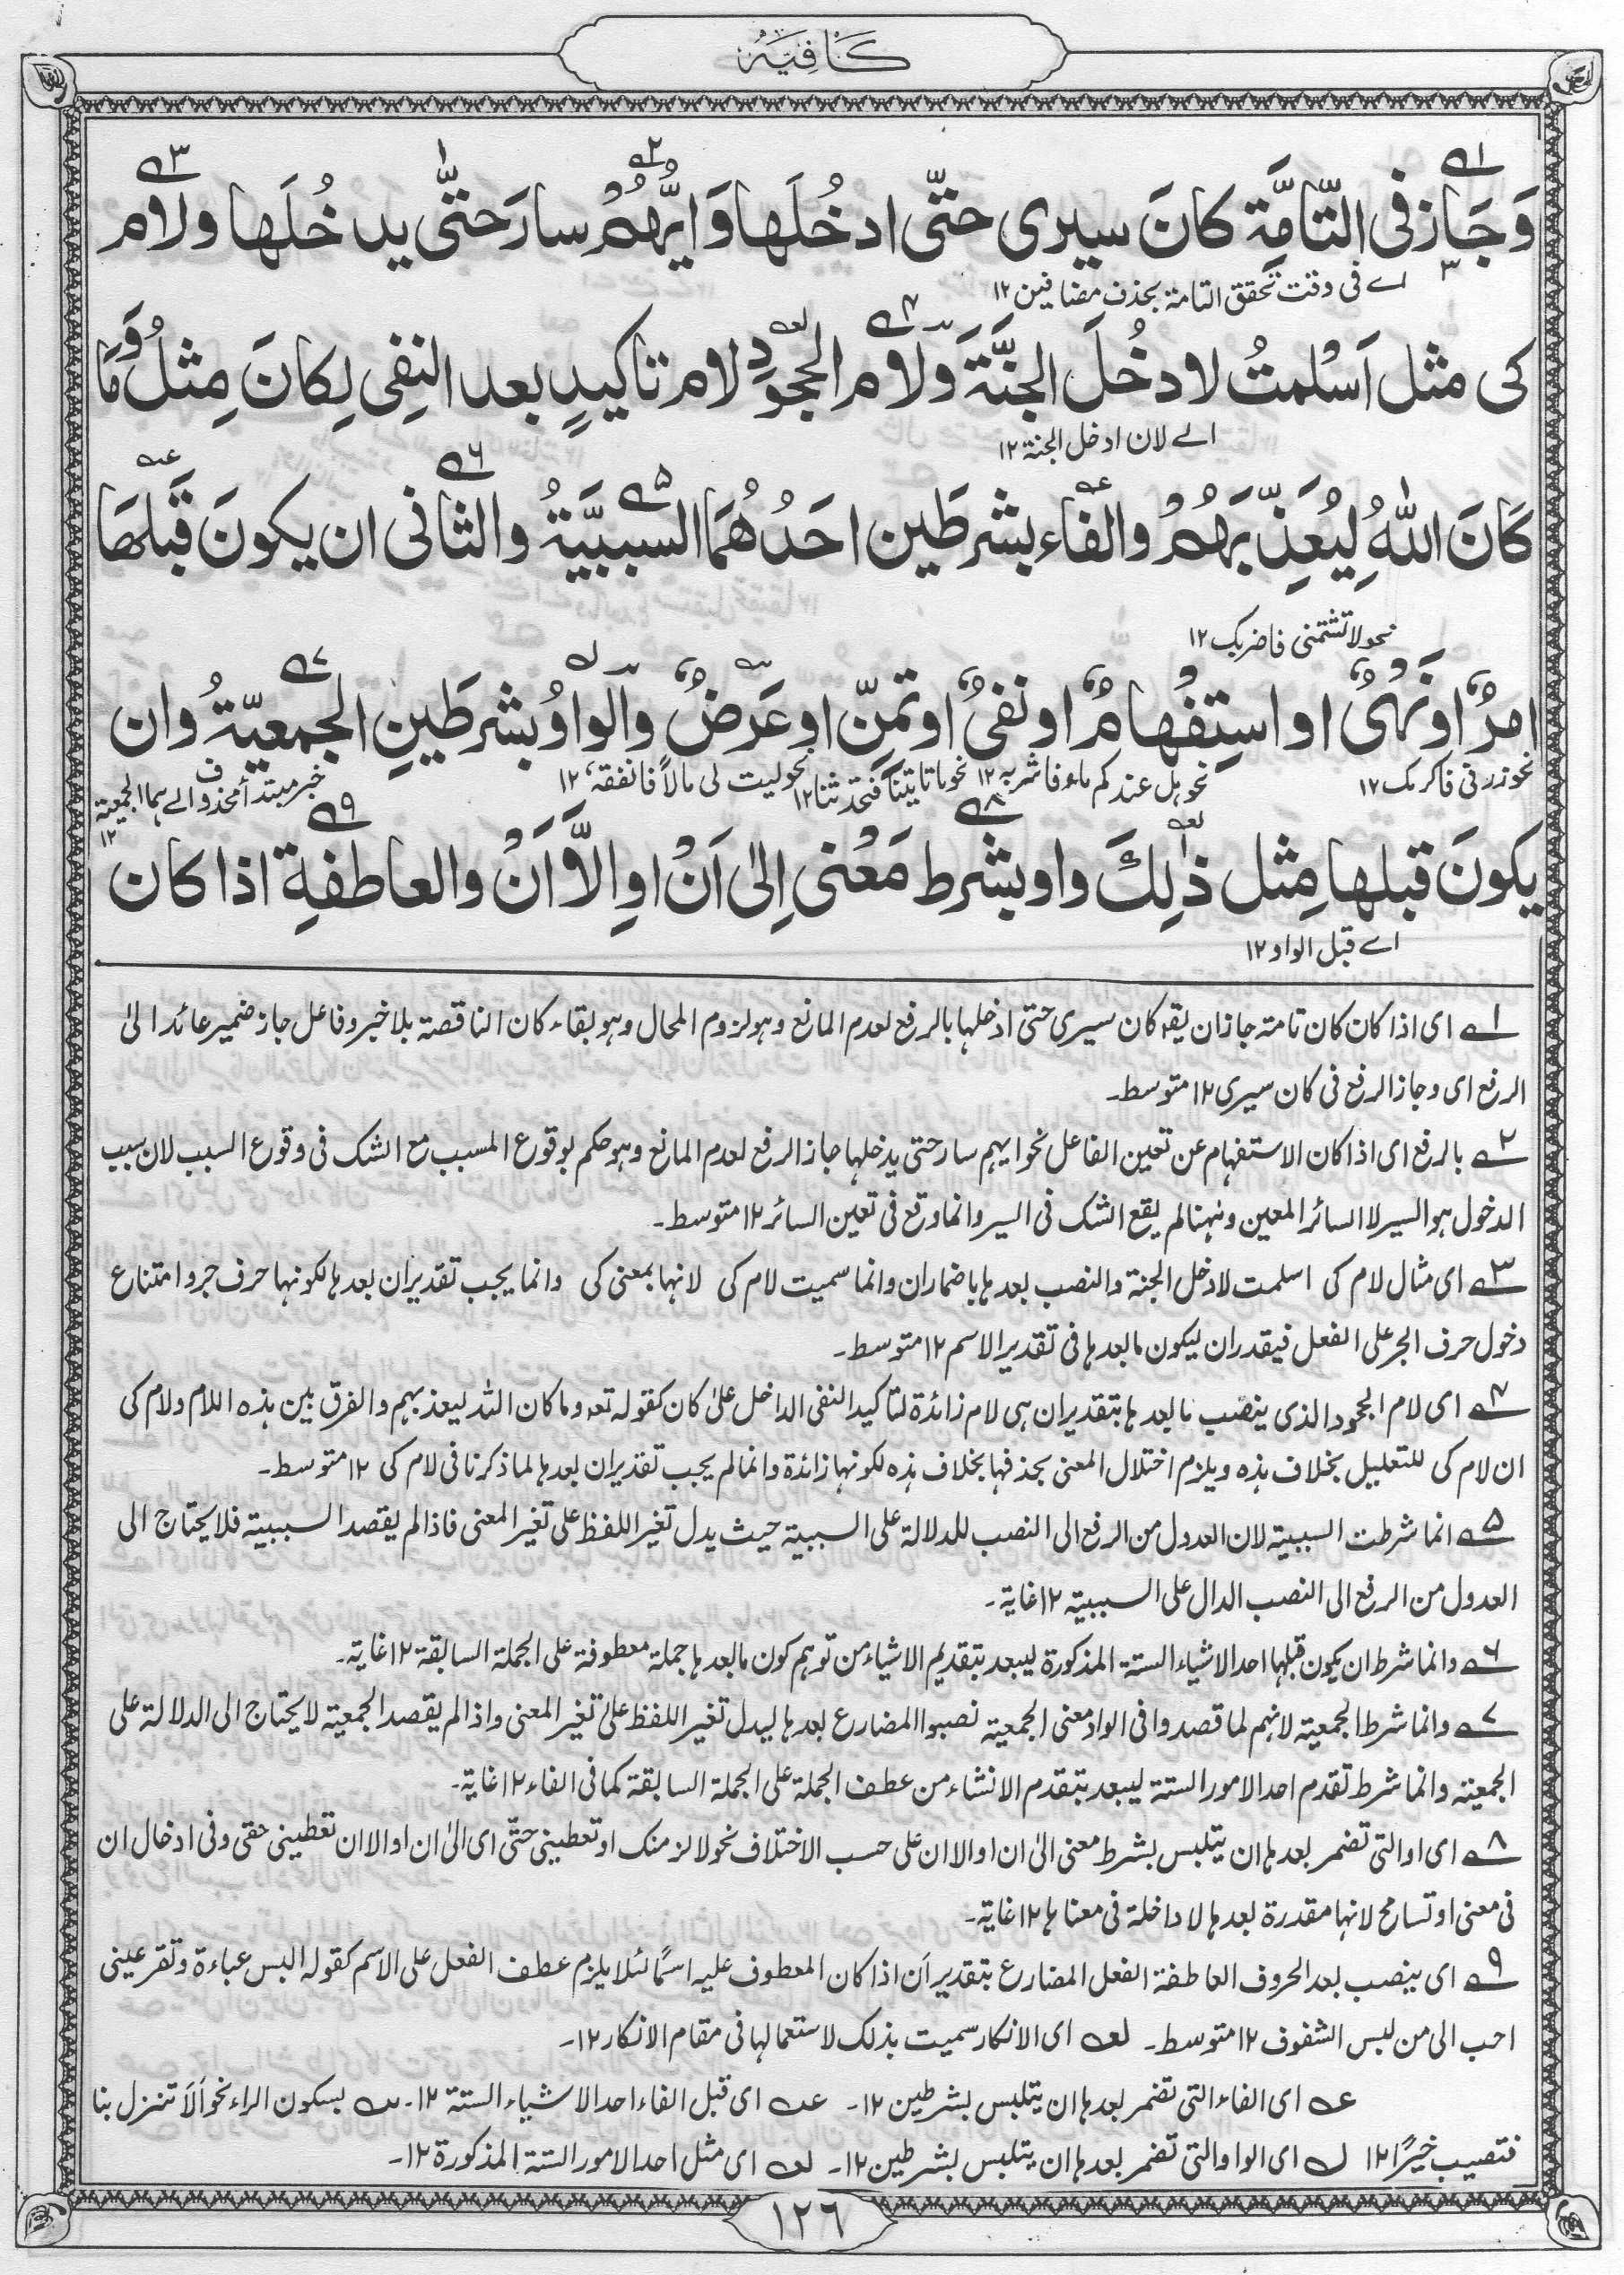 كَافِيَه
وَجَاز فى التّامَّةِ كانَ سيرى حتّى ادخُلَها وَايُّهُمْ سارَ حتّٰى يدخُلَها ولام
اے فى وقت تحقق التامة بحذف مضافين ١٢
كى مثل اَسْلمتُ لادخُلَ الجنَّةَ وَلام الجحودِ لام تاكيدٍ بعد النفِى لِكانَ مِثلُ وَمَا
اے لان ادخل الجنة ١٢
كَانَ اللّٰهُ لِيُعَذِّبَهُمْ والفاء بشرطَين احَدُهُمَا السببيَّةُ والثانى ان يكونَ قَبلَهَا
نحو لا تشتمنى فاضربك ١٢
امرٌ او نَهْىٌ او استِفْهامٌ او نفىٌ او تمنّ او عَرضٌ والواوُ بشرطَينِ الجمعيّةُ وان
نحو زرنى فاكرمك ١٢ نحو هل عندكم ماء فاشربه ١٢ نحو ما تاتينا فتحدثنا ١٢ نحو ليت لى مالاً فانفقه ١٢ خبر مبتدأ محذوف اے هما الجمعية ١٢
يكونَ قبلها مِثل ذٰلِكَ واو بشرط مَعْنى اِلىٰ اَنْ اوِ الاَّ اَنْ والعاطفةِ اذا كان
اے قبل الواو ١٢
١ اى اذا كان كان تامة جاز ان يقه كان سيرى حتى ادخلها بالرفع لعدم المانع وهو لزوم المحال وهو بقاء كان الناقصة بلا خبر وفاعل جاز ضمير عائد الىٰ
الرفع اى وجاز الرفع فى كان سيرى ١٢ متوسط۔
٢ بالرفع اى اذا كان الاستفهام عن تعين الفاعل نحو ايهم سار حتى يدخلها جاز الرفع لعدم المانع وهو حكم بوقوع المسبب مع الشك فى وقوع السبب لان سبب
الدخول هو السير لا السائر المعين وههنا لم يقع الشك فى السير وانما وقع فى تعين السائر ١٢ متوسط۔
٣ اى مثال لام كى اسلمت لادخل الجنة والنصب بعدها باضمار ان وانما سميت لام كى لانها بمعنى كى وانما يجب تقدير ان بعدها لكونها حرف جر وامتناع
دخول حرف الجر على الفعل فيقدر ان ليكون ما بعدها فى تقدير الاسم ١٢ متوسط۔
٤ اى لام الجحود الذى ينصب ما بعدها بتقدير ان هى لام زائدة لتاكيد النفى الداخل علىٰ كان كقوله تعه وما كان الله ليعذبهم والفرق بين هذه اللام ولام كى
ان لام كى للتعليل بخلاف هذه ويلزم اختلال المعنى بحذفها بخلاف هذه لكونها زائدة وانما لم يجب تقدير ان بعدها لما ذكرنا فى لام كى ١٢ متوسط۔
٥ انما شرطت السببية لان العدول من الرفع الى النصب للدلالة على السببية حيث يدل تغير اللفظ على تغير المعنى فاذا لم يقصد السببية فلا يحتاج الى
العدول من الرفع الى النصب الدال على السببية ١٢ غاية۔
٦ وانما شرط ان يكون قبلها احد الاشياء الستة المذكورة ليبعد بتقديم الاشياء من توهم كون ما بعدها جملة معطوفة على الجملة السابقة ١٢ غاية۔
٧ وانما شرط الجمعية لانهم لما قصدوا فى الواو معنى الجمعية نصبوا المضارع بعدها ليدل تغير اللفظ على تغير المعنى واذا لم يقصد الجمعية لا يحتاج الى الدلالة على
الجمعية وانما شرط تقدم احد الامور الستة ليبعد بتقدم الانشاء من عطف الجملة على الجملة السابقة كما فى الفاء ١٢ غاية۔
٨ اى او التى تضمر بعدها ان يتلبس بشرط معنى الىٰ ان او الا ان على حسب الاختلاف نحو لالزمنك او تعطينى حتّى اى الىٰ ان او الا ان تعطينى حقى وفى ادخال ان
فى معنى او تسامح لانها مقدرة بعدها لا داخلة فى معناها ١٢ غاية۔
٩ اى ينصب بعد الحروف العاطفة الفعل المضارع بتقدير اَن اذا كان المعطوف عليه اسمًا لئلا يلزم عطف الفعل على الاسم كقوله البس عباءة وتقر عينى
احب الى من لبس الشفوف ١٢ متوسط۔ لعه اى الانكار سميت بذلك لاستعمالها فى مقام الانكار ١٢۔
عه اى الفاء التى تضمر بعدها ان يتلبس بشرطين ١٢۔ عه اى قبل الفاء احد الاشياء الستة ١٢۔ سه بسكون الراء نحو اَلاَ تنزل بنا
فتصيب خيرًا ١٢ له اى الواو التى تضمر بعدها ان يتلبس بشرطين ١٢۔ لعه اى مثل احد الامور الستة المذكورة ١٢۔
١٢٦